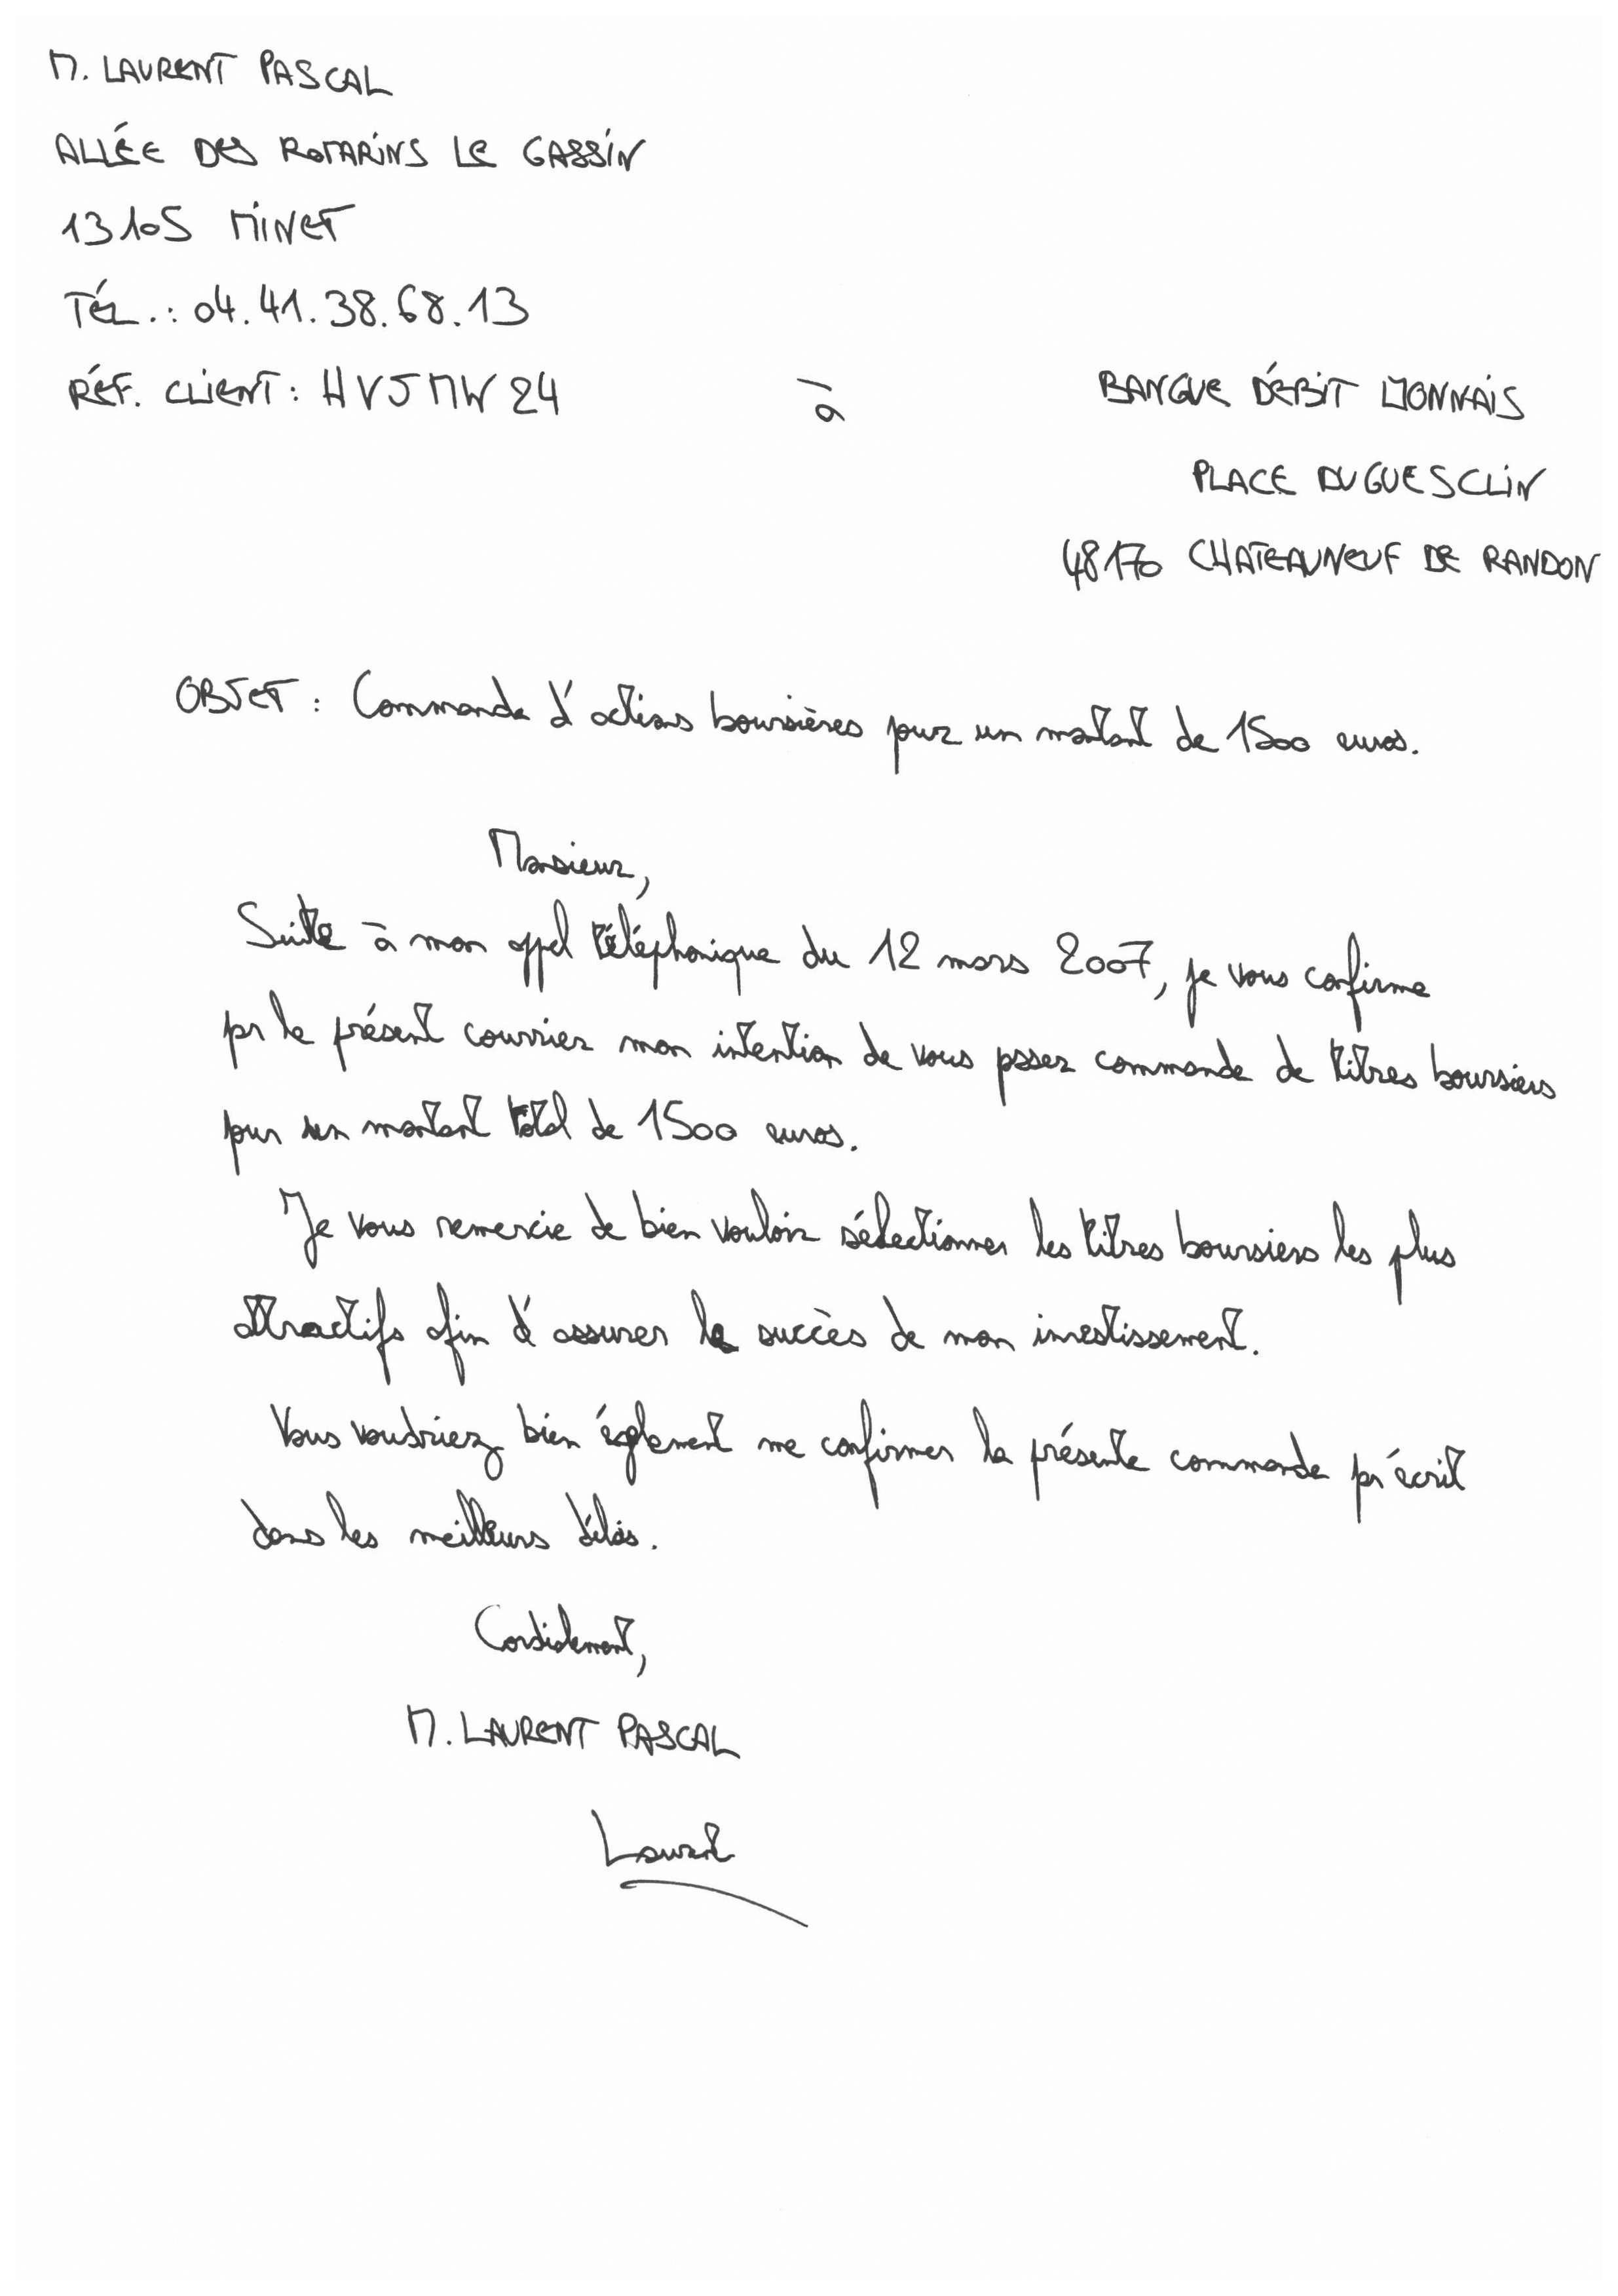 M. LAURENT PASCAL
ALLÉE DES ROMARINS LE GASSIN
13105 MIMET
TÉL.: 04.41.38.68.13
RÉF. CLIENT: HVJMW24
à
BANQUE DÉBIT LYONNAIS
PLACE DUGUESCLIN
48170 CHATEAUNEUF DE RANDON
OBJET : Commande d'actions boursières pour un montant de 1500 euros.
Monsieur,
Suite à mon appel téléphonique du 12 mars 2007, je vous confirme
par le présent courrier mon intention de vous passer commande de titres boursiers
pour un montant total de 1500 euros.
Je vous remercie de bien vouloir sélectionner les titres boursiers les plus
attractifs afin d'assurer le succès de mon investissement.
Vous voudriez bien également me confirmer la présente commande par écrit
dans les meilleurs délais.
Cordialement,
M. LAURENT PASCAL
Laurent